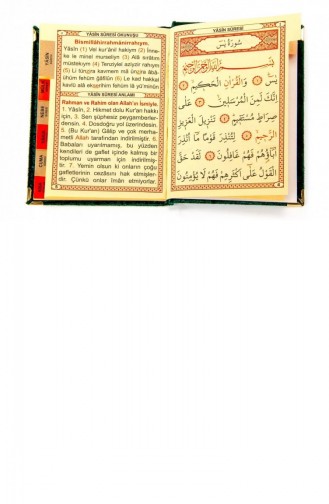 YÂSİN SÛRESİ OKUNUŞU
Bismillâhirrahmânirrahıym.
Yâsîn (1) Vel kur'ânil hakiym (2) İnne-
ke le minel murseliyn (3) Alâ sırâtım
müstekıym (4) Tenziylel aziyzir rahıym
(5) Li tünzira kavmem mâ ünzira âbâ-
ühüm fehüm ğâfilûn (6) Le kad hakkal
kavlü alâ ekserihim fehüm lâ yü'minûn
YÂSİN SÛRESİ ANLAMI
Rahman ve Rahim olan Allah'ın İsmiyle.
1. Yâsîn, 2. Hikmet dolu Kur'an hakkı
için, 3. Sen şüphesiz peygamberler-
densin. 4. Dosdoğru yol üzerindesin.
5. (Bu Kur'an) Gâlip ve çok merha-
metli Allah tarafından indirilmiştir. 6.
Babaları uyarılmamış, bu yüzden
kendileri de gaflet içinde kalmış bir
toplumu uyarman için indirilmiş-
tir. 7. Yemin olsun ki onların çoğu
gafletlerinin cezâsını hak etmişler-
dir. Çünkü onlar îmân etmiyorlar.
YÂSİN SÛRESİ
سُورَةُ يٰسٓ
بِسْمِ اللّٰهِ الرَّحْمٰنِ الرَّحِيمِ
يٰسٓ ۝ وَالْقُرْاٰنِ الْحَكِيمِ ۝
اِنَّكَ لَمِنَ الْمُرْسَلِينَ ۝ عَلٰى
صِرَاطٍ مُسْتَقِيمٍ ۝ تَنْزِيلَ الْعَزِيزِ
الرَّحِيمِ ۝ لِتُنْذِرَ قَوْمًا مَا اُنْذِرَ
اٰبَاؤُهُمْ فَهُمْ غَافِلُونَ ۝ لَقَدْ حَقَّ
الْقَوْلُ عَلٰى اَكْثَرِهِمْ فَهُمْ لَا يُؤْمِنُونَ
YÂSİN